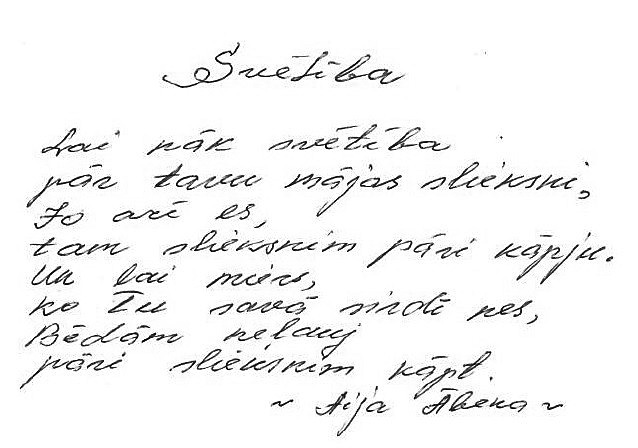 Svētība
Lai nāk svētība
pār tavu mājas slieksni,
Jo arī es,
tam slieksnim pāri kāpju.
Un lai miers,
ko Tu savā sirdī nes,
Bēdām neļauj
pāri slieksnim kāpt.
~ Aija Ābena ~